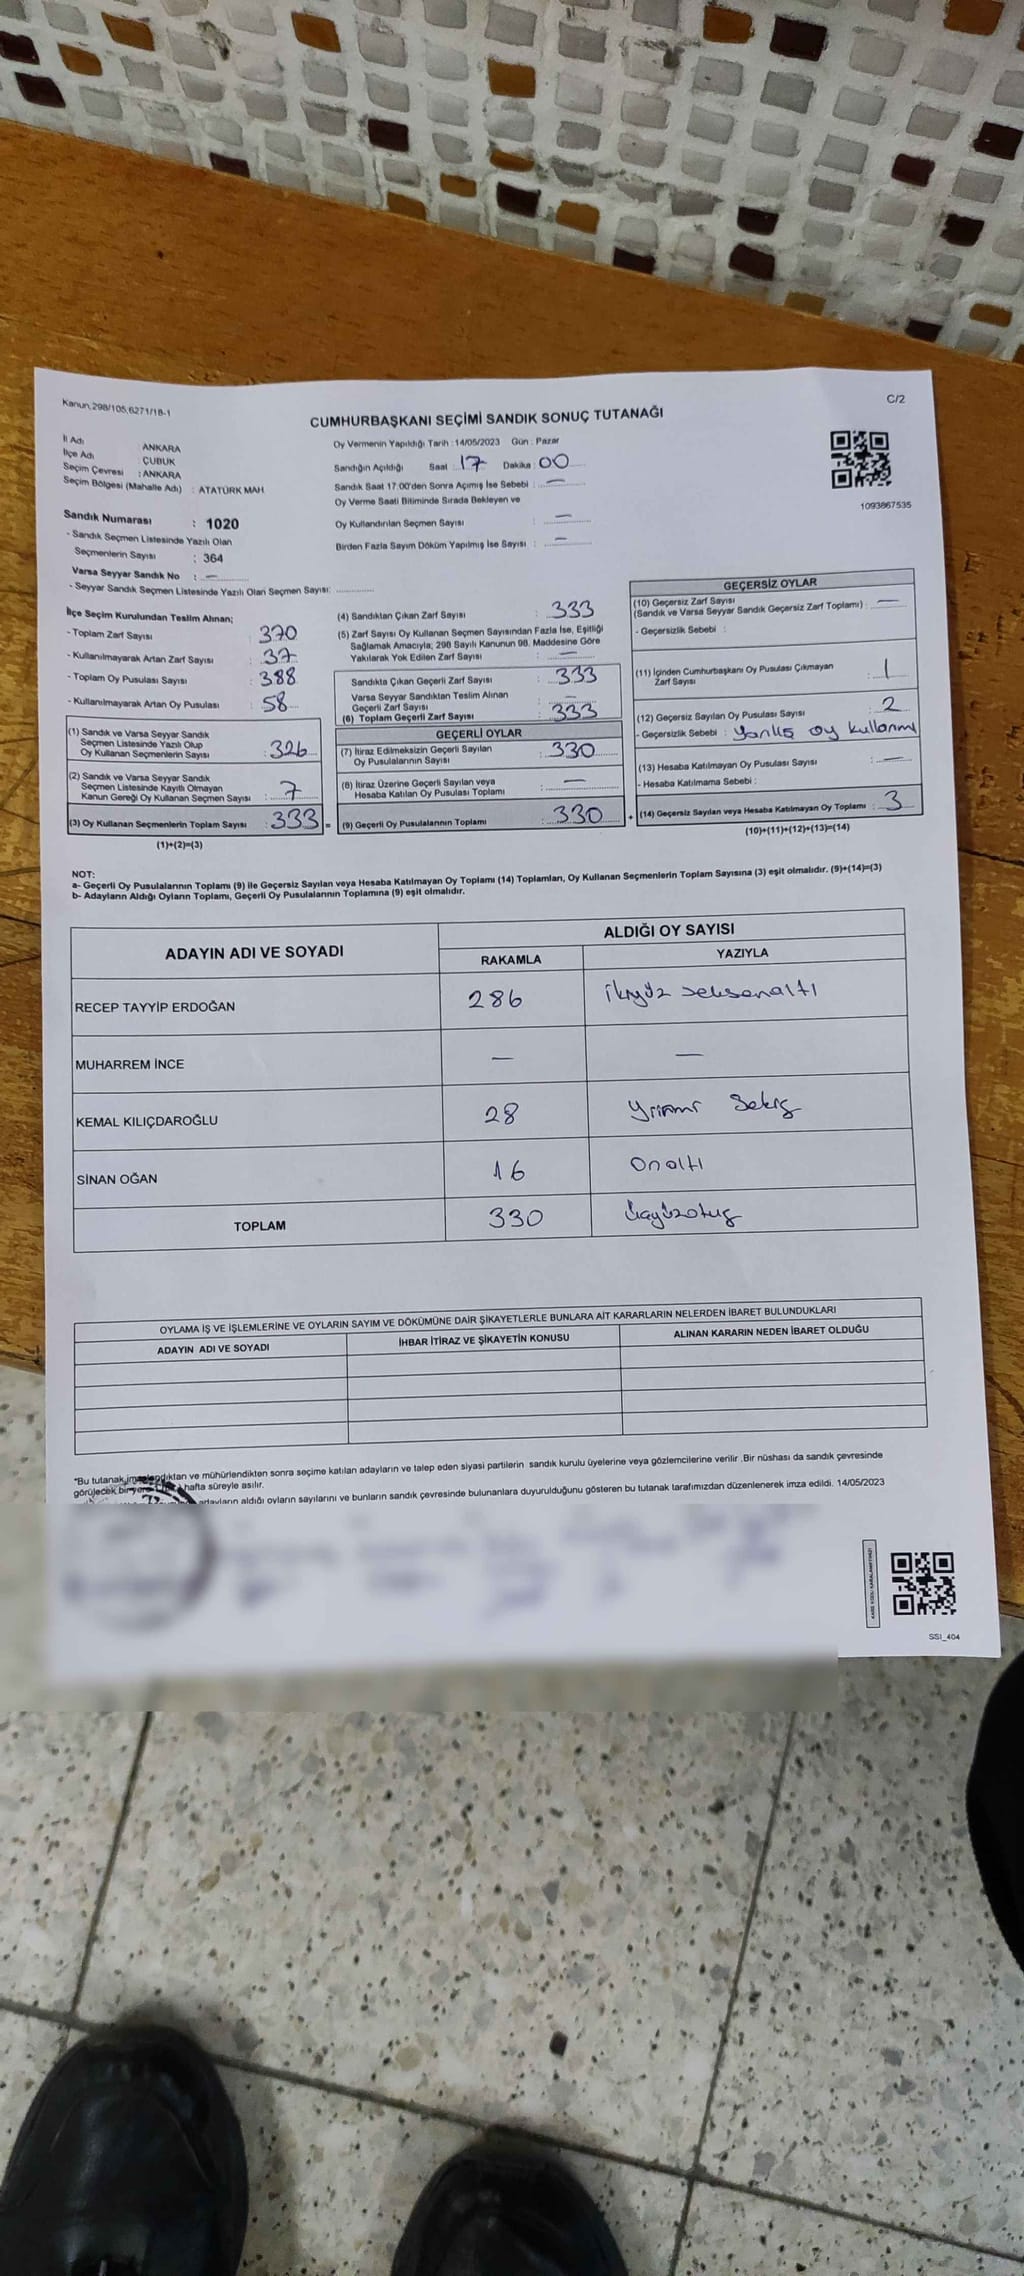 Kanun,298/105,6271/18-1
C/2
CUMHURBAŞKANI SEÇİMİ SANDIK SONUÇ TUTANAĞI
İl Adı : ANKARA
İlçe Adı : ÇUBUK
Seçim Çevresi : ANKARA
Seçim Bölgesi (Mahalle Adı) : ATATÜRK MAH
Sandık Numarası : 1020
- Sandık Seçmen Listesinde Yazılı Olan
Seçmenlerin Sayısı : 364
Varsa Seyyar Sandık No : —
- Seyyar Sandık Seçmen Listesinde Yazılı Olan Seçmen Sayısı:
Oy Vermenin Yapıldığı Tarih :14/05/2023 Gün : Pazar
Sandığın Açıldığı Saat : 17 Dakika : 00
Sandık Saat 17:00'den Sonra Açımış İse Sebebi : —
Oy Verme Saati Bitiminde Sırada Bekleyen ve
Oy Kullandırılan Seçmen Sayısı : —
Birden Fazla Sayım Döküm Yapılmış İse Sayısı : —
1093867535
İlçe Seçim Kurulundan Teslim Alınan;
- Toplam Zarf Sayısı : 370
- Kullanılmayarak Artan Zarf Sayısı : 37
- Toplam Oy Pusulası Sayısı : 388
- Kullanılmayarak Artan Oy Pusulası : 58
(1) Sandık ve Varsa Seyyar Sandık
Seçmen Listesinde Yazılı Olup
Oy Kullanan Seçmenlerin Sayısı : 326
(2) Sandık ve Varsa Seyyar Sandık
Seçmen Listesinde Kayıtlı Olmayan
Kanun Gereği Oy Kullanan Seçmen Sayısı : 7
(3) Oy Kullanan Seçmenlerin Toplam Sayısı : 333 =
(1)+(2)=(3)
(4) Sandıktan Çıkan Zarf Sayısı : 333
(5) Zarf Sayısı Oy Kullanan Seçmen Sayısından Fazla İse, Eşitliği
Sağlamak Amacıyla; 298 Sayılı Kanunun 98. Maddesine Göre
Yakılarak Yok Edilen Zarf Sayısı : —
Sandıkta Çıkan Geçerli Zarf Sayısı : 333
Varsa Seyyar Sandıktan Teslim Alınan
Geçerli Zarf Sayısı : —
(6) Toplam Geçerli Zarf Sayısı : 333
GEÇERLİ OYLAR
(7) İtiraz Edilmeksizin Geçerli Sayılan
Oy Pusulalarının Sayısı : 330
(8) İtiraz Üzerine Geçerli Sayılan veya
Hesaba Katılan Oy Pusulası Toplamı : —
(9) Geçerli Oy Pusulalarının Toplamı : 330 +
GEÇERSİZ OYLAR
(10) Geçersiz Zarf Sayısı
(Sandık ve Varsa Seyyar Sandık Geçersiz Zarf Toplamı) : —
- Geçersizlik Sebebi :
(11) İçinden Cumhurbaşkanı Oy Pusulası Çıkmayan
Zarf Sayısı : 1
(12) Geçersiz Sayılan Oy Pusulası Sayısı : 2
- Geçersizlik Sebebi : Yanlış oy kullanımı
(13) Hesaba Katılmayan Oy Pusulası Sayısı : —
- Hesaba Katılmama Sebebi :
(14) Geçersiz Sayılan veya Hesaba Katılmayan Oy Toplamı : 3
(10)+(11)+(12)+(13)=(14)
NOT:
a- Geçerli Oy Pusulalarının Toplamı (9) ile Geçersiz Sayılan veya Hesaba Katılmayan Oy Toplamı (14) Toplamları, Oy Kullanan Seçmenlerin Toplam Sayısına (3) eşit olmalıdır. (9)+(14)=(3)
b- Adayların Aldığı Oyların Toplamı, Geçerli Oy Pusulalarının Toplamına (9) eşit olmalıdır.
ADAYIN ADI VE SOYADI ALDIĞI OY SAYISI
RAKAMLA YAZIYLA
RECEP TAYYİP ERDOĞAN 286 ikiyüz seksenaltı
MUHARREM İNCE — —
KEMAL KILIÇDAROĞLU 28 Yirmi Sekiz
SİNAN OĞAN 16 Onaltı
TOPLAM 330 üçyüzotuz
OYLAMA İŞ VE İŞLEMLERİNE VE OYLARIN SAYIM VE DÖKÜMÜNE DAİR ŞİKAYETLERLE BUNLARA AİT KARARLARIN NELERDEN İBARET BULUNDUKLARI
ADAYIN ADI VE SOYADI İHBAR İTİRAZ VE ŞİKAYETİN KONUSU ALINAN KARARIN NEDEN İBARET OLDUĞU
*Bu tutanak imzalandıktan ve mühürlendikten sonra seçime katılan adayların ve talep eden siyasi partilerin sandık kurulu üyelerine veya gözlemcilerine verilir .Bir nüshası da sandık çevresinde
görülecek bir yere hafta süreyle asılır.
adayların aldığı oyların sayılarını ve bunların sandık çevresinde bulunanlara duyurulduğunu gösteren bu tutanak tarafımızdan düzenlenerek imza edildi. 14/05/2023
SSI_404